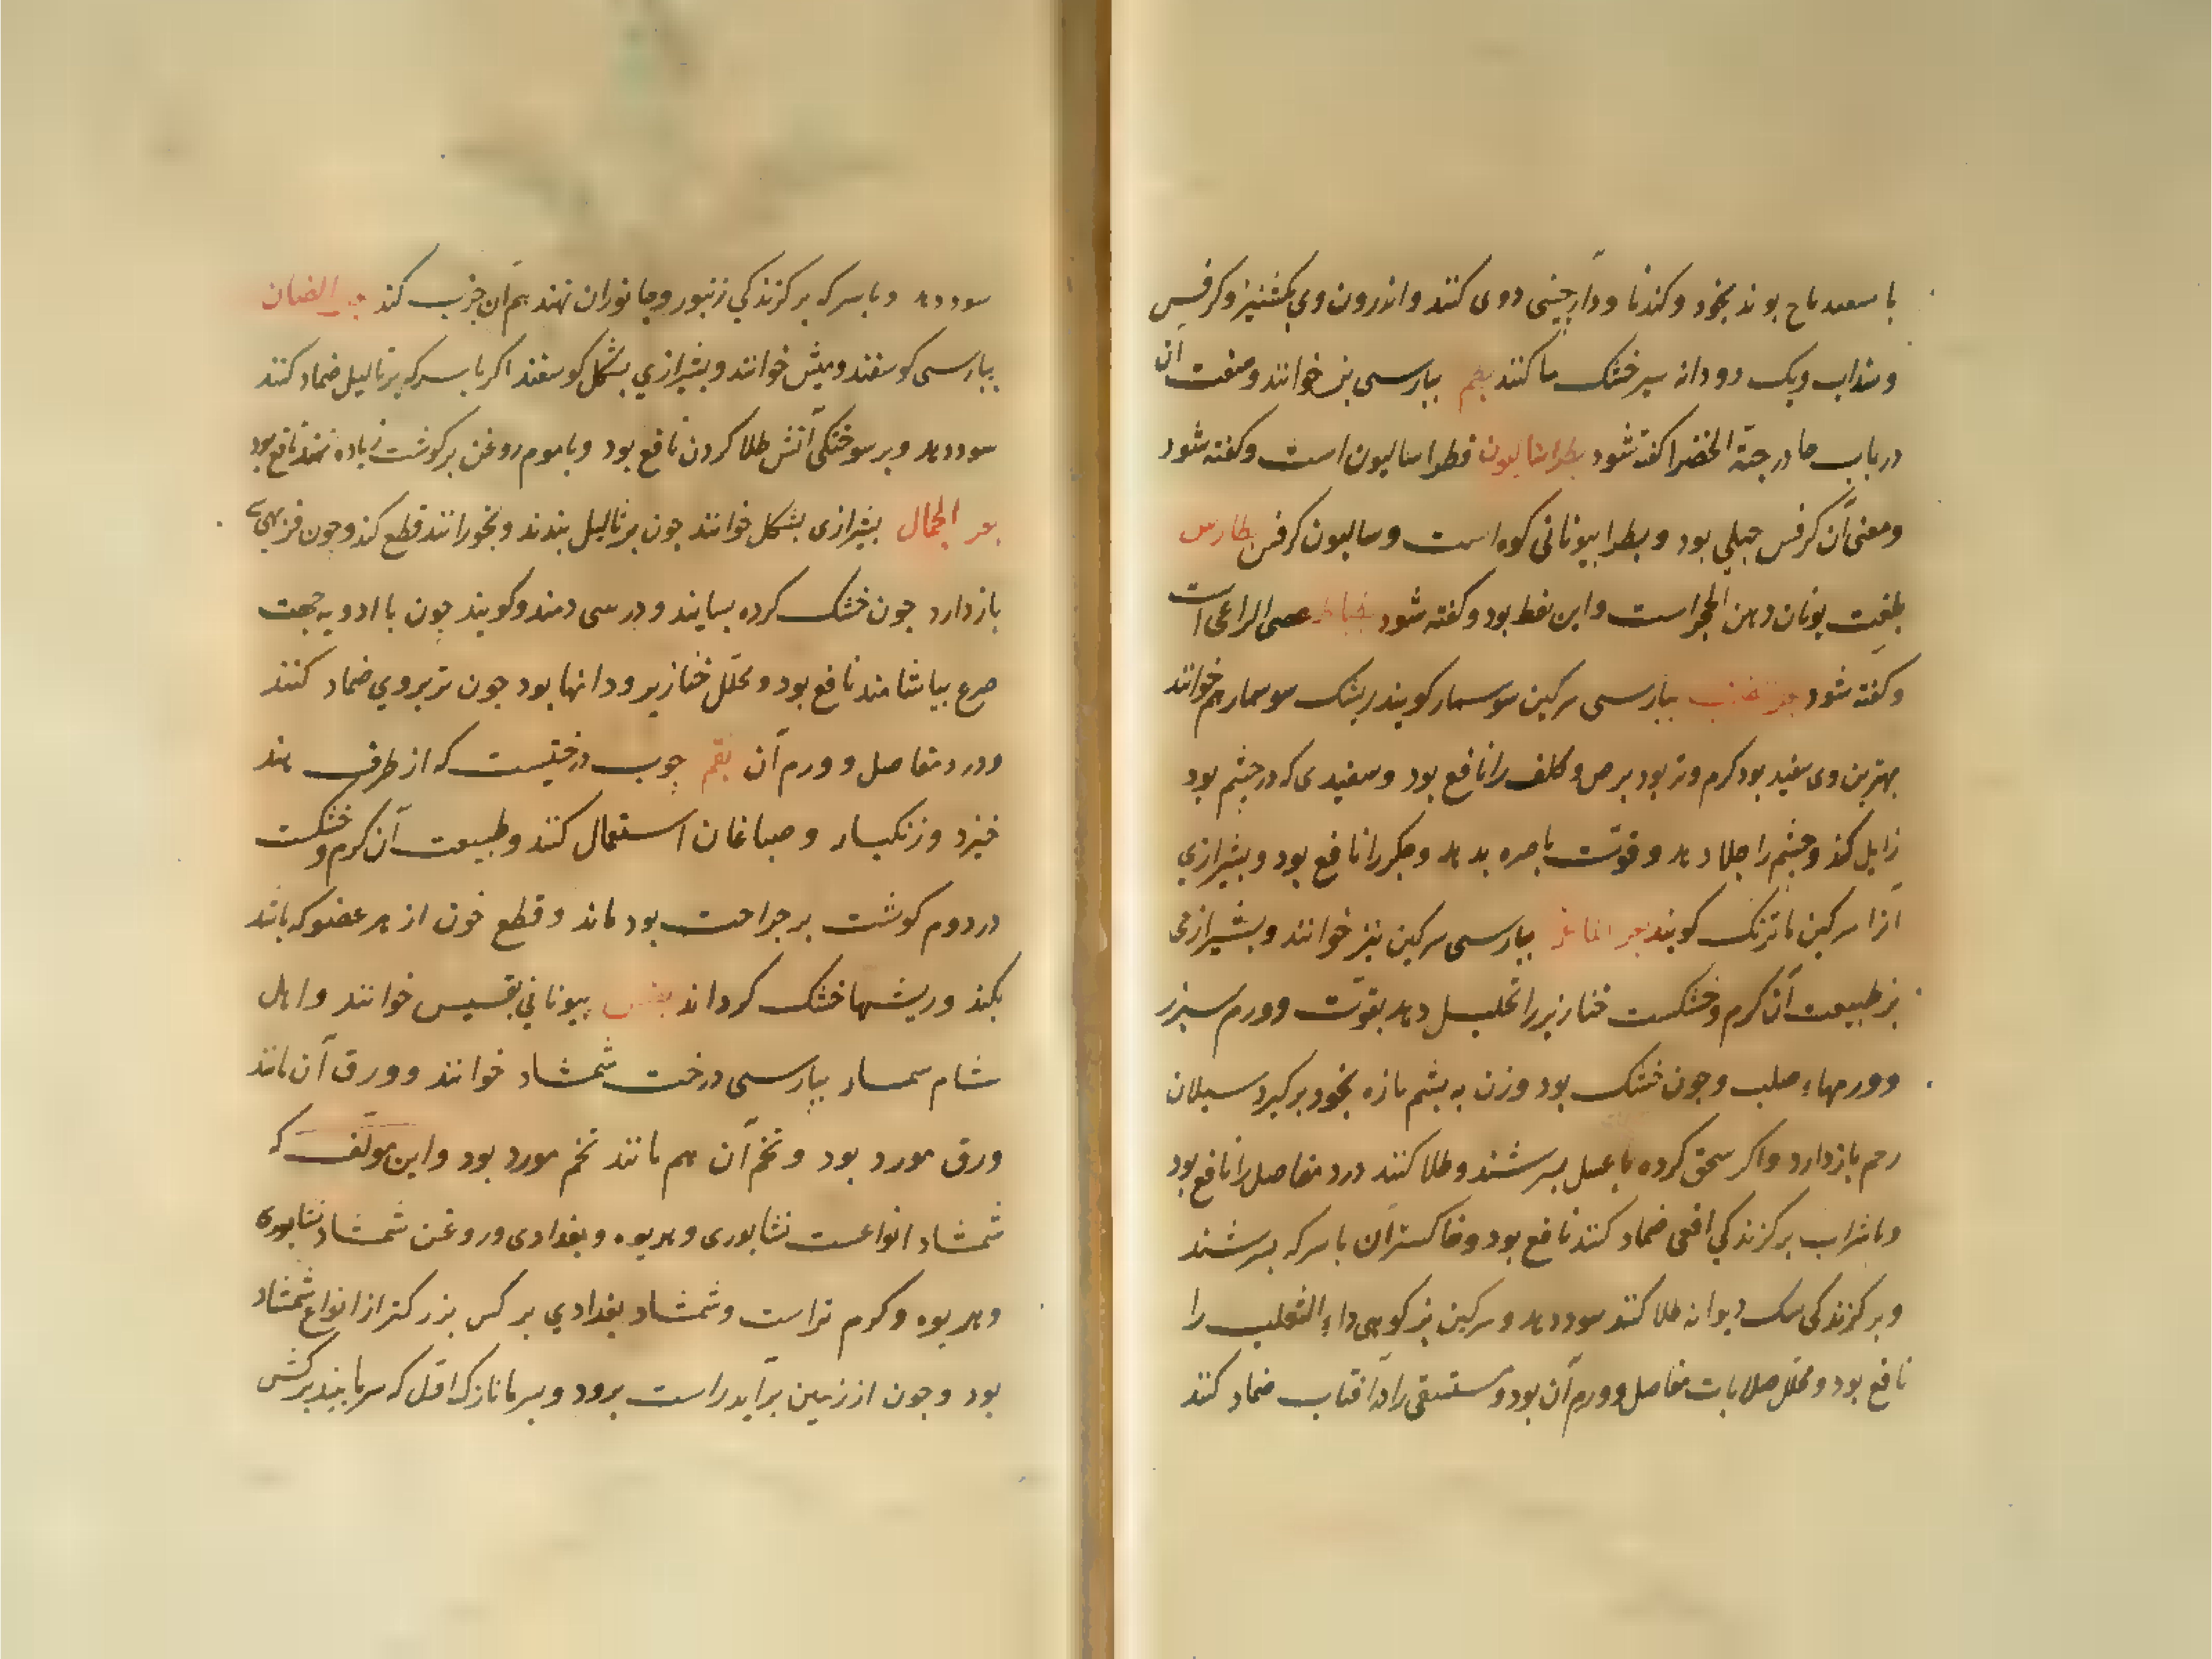 با سعد ماح بوند بخود و کندنا و دارچینی دوی کنند و اندرون وی کشنیز و کرفس
و سنداب ویک دودانه سیر خشک ما کنند بطم بپارسی بن خوانند و صفت آن
درباب حا در حبة الخضرا کفته شود بطراسالیون فطراسالیون است و کفته شود
ومعنی آن کرفس جبلی بود و بطرا بیونانی کوه است و سالیون کرفس بطارس
بلغت یونان دهن الحجر است و این نفط بود و کفته شود عصی الراعی است
و کفته شود بپارسی سرکین سوسمار کویند ربشک سوسمار هم خوانند
بهترین وی سفید بود کرم و تر بود برص و کلف را نافع بود و سفیدی که در چشم بود
زایل کند و چشم را جلا دهد و قوّت باصره بدهد و جکر را نافع بود و بشیرازی
آنرا سرکین ماترنک کویند بعر الماعز بپارسی سرکین بز خوانند و بشیرازی
بز طبیعت آن کرم و خشکست خنازیر را تحلیل دهد بقوّت و ورم سپرز
و ورمهاء صلب و چون خشک بود وزن به پشم پازه بخود برکیرد سیلان
رحم بازدارد و اکر سحق کرده با عسل بسرشند و طلا کنند درد مفاصل را نافع بود
و با شراب بر کزندکی افعی ضماد کنند نافع بود و خاکستر آن با سرکه بسرشند
و بر کزندکی سک دیوانه طلا کنند سود دهد و سرکین بز کوهی داء الثعلب را
نافع بود و محلل صلابات مفاصل و ورم آن بود و مستسقی را در آفتاب ضماد کنند
سود دهد و با سرکه بر کزندکی زنبور و جانوران نهند هم آن جذب کند بعر الضان
بپارسی کوسفند و میش خوانند و بشیرازی بشکل کوسفند اکر با سرکه بر ثالیل ضماد کنند
سود دهد و بر سوختکی آتش طلا کردن نافع بود و با موم روغن بر کوشت زیاده نهند نافع بود
بعر الجمال بشیرازی بشکل خوانند چون بر ثالیل بندند و بخورانند قطع کند و چون
بازدارد چون خشک کرده بسایند و در سی دمند و کویند چون با ادویه جهت
صرع بیاشامند نافع بود و محلل خنازیر و دانها بود چون تر بروی ضماد کنند
و درد مفاصل و ورم آن بقم چوب درختیست که از طرف هند
خیزد و زنکبار و صباغان استعمال کنند و طبیعت آن کرم و خشکست
در دوم کوشت بر جراحت بود ماند و قطع خون از هر عضو که باشد
بکند و ریشها خشک کرداند بقس بیونانی بقسیس خوانند و اهل
شام سمسار بپارسی درخت شمشاد خوانند و ورق آن مانند
ورق مورد بود و تخم آن هم مانند تخم مورد بود و این مولّف که
شمشاد انواعست نشابوری و هریوه و بغدادی و روغن شمشاد نشابوری
و هریوه و کرم تر است و شمشاد بغدادی برکس بزرکتر از انواع شمشاد
بود و چون از زمین برآید راست برود و بسرما نازک اقل که سرما بیند برکش